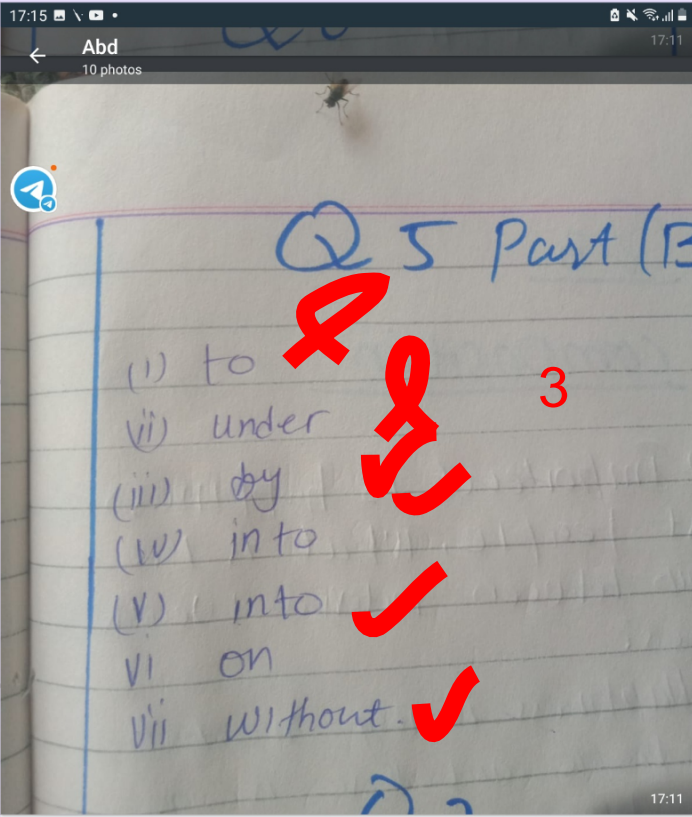 17:15
Abd
10 photos
17:11
Q 5 Part (B
(i) to
vii) under
3
(iii) by
(iv) into
(v) into
vi on
vii without.
17:11